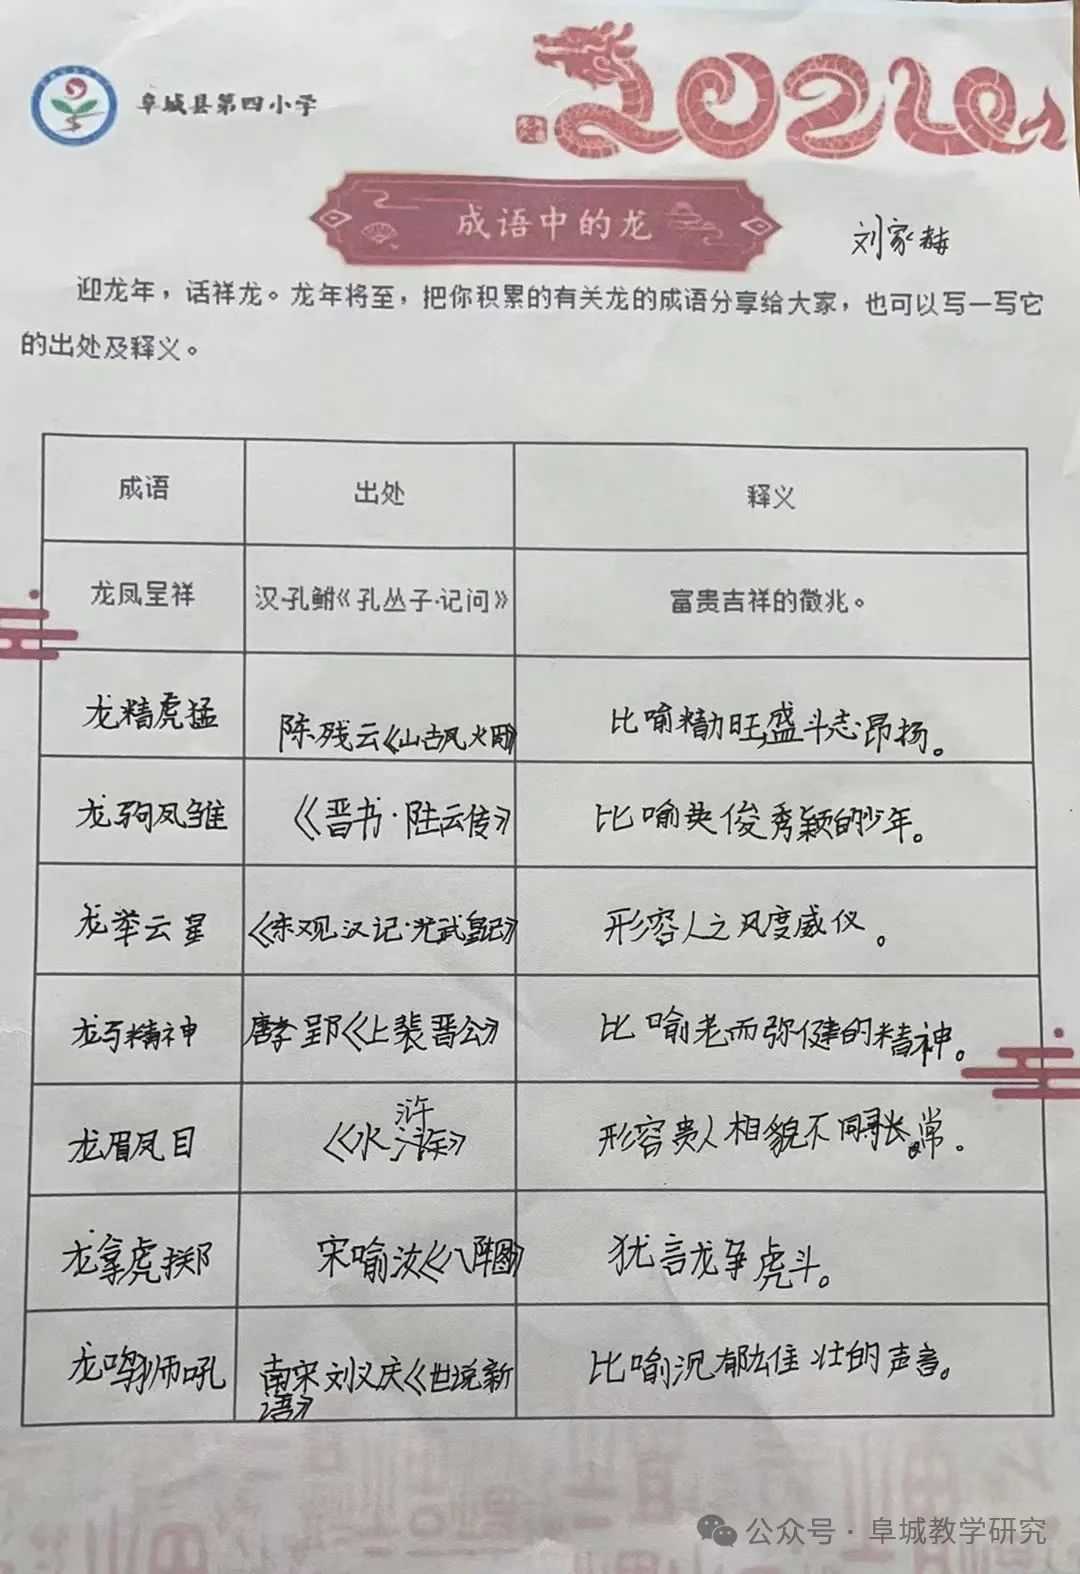 阜城县第四小学
2024
成语中的龙
刘家赫
迎龙年，话祥龙。龙年将至，把你积累的有关龙的成语分享给大家，也可以写一写它
的出处及释义。
成语 出处 释义
龙凤呈祥 汉·孔鲋《孔丛子·记问》 富贵吉祥的徵兆。
龙精虎猛 陈残云《山古风火 》 比喻精力旺盛,斗志昂扬。
龙驹凤雏 《晋书·陆云传》 比喻英俊秀颖的少年。
龙举云星 《东观汉记·光武皇记》 形容人之风度威仪。
龙马精神 唐李郢《上裴晋公》 比喻老而弥健的精神。
龙眉凤目 《水浒 》 形容贵人相貌不同寻常。
龙拿虎掷 宋喻汝《八阵图》 犹言龙争虎斗。
龙鸣狮吼 南宋刘义庆《世说新
语》 比喻沉郁雄壮的声音。
公众号·阜城教学研究